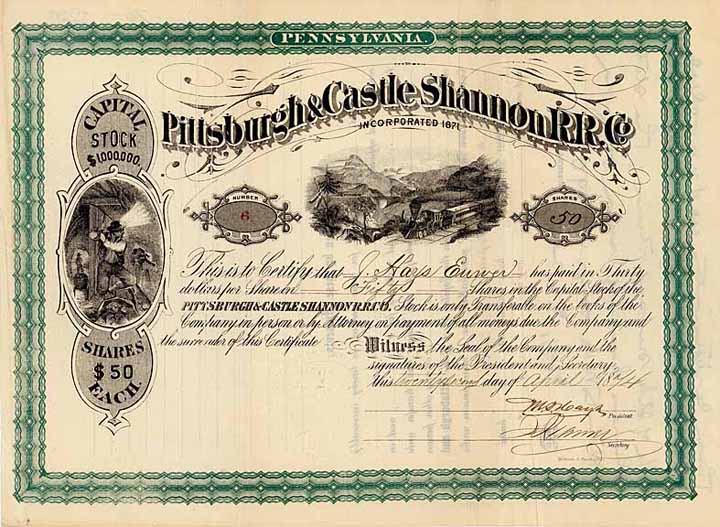 PENNSYLVANIA.
Pittsburgh & Castle Shannon R.R. Co
INCORPORATED 1871
CAPITAL
STOCK
$1,000,000.
NUMBER
6
SHARES
50
This is to Certify that J. Hays has paid in Thirty
dollars per Share on Fifty Shares in the Capital Stock of the
PITTSBURGH & CASTLE SHANNON R.R. CO. Stock is only Transferable on the books of the
Company in person or by Attorney on payment of all moneys due the Company and
the surrender of this Certificate
Witness the Seal of the Company and the
signatures of the President and Secretary
this twenty second day of April 1874
President
Secretary
SHARES
$50
EACH.